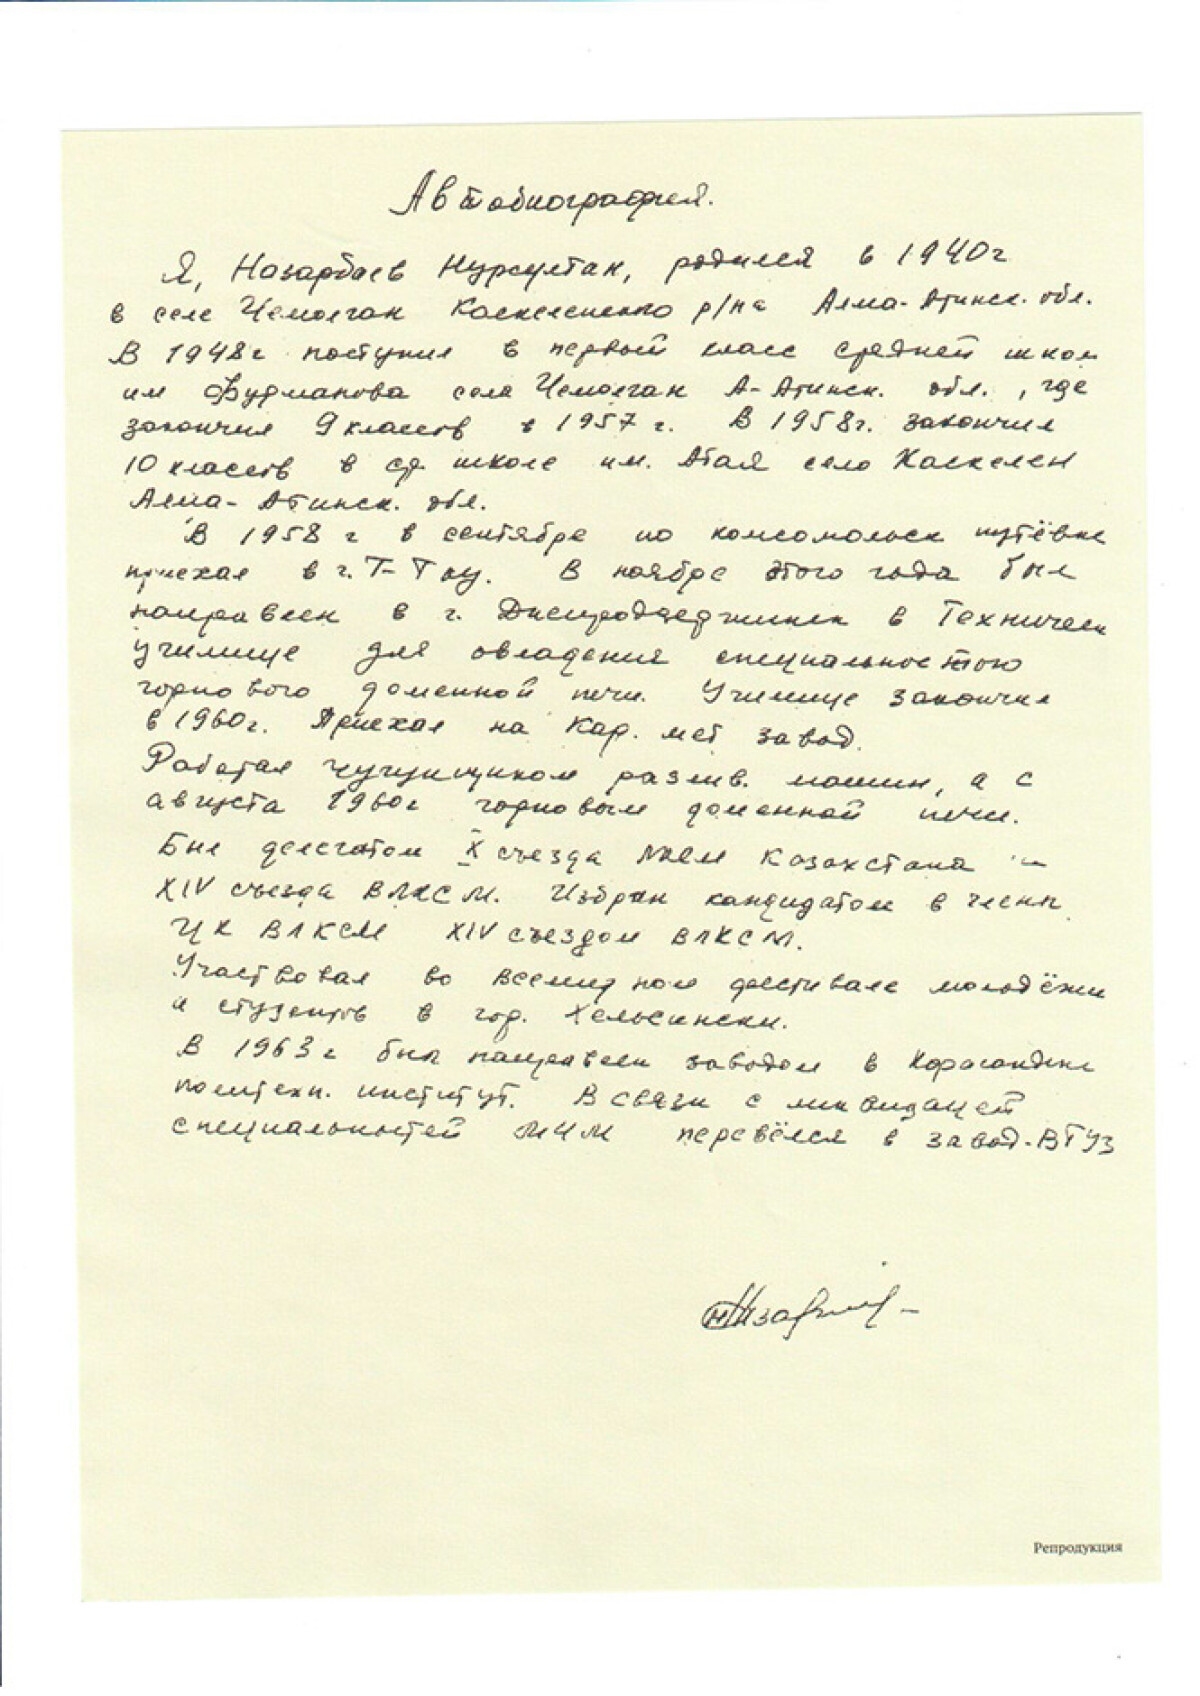 Автобиография.
Я, Назарбаев Нурсултан, родился в 1940г
в селе Чемолган Каскеленского р/на Алма-Атинск. обл.
В 1948г поступил в первый класс средней школ
им Фурманова села Чемолган А-Атинск. обл., где
закончил 9 классов в 1957 г. В 1958г. закончил
10 классов в ср. школе им. Абая село Каскелен
Алма-Атинск. обл.
В 1958 г в сентябре по комсомольск путёвке
приехал в г. Т-Тау. В ноябре этого года был
направлен в г. Днепродзержинск в Техническ
училище для овладения специальностью
горнового доменной печи. Училище закончил
в 1960г. Приехал на Кар. мет завод.
Работал чугунщиком разлив. машин, а с
августа 1960г горновым доменной печи.
Был делегатом X съезда ЛКСМ Казахстана и
XIV съезда ВЛКСМ. Избран кандидатом в члены
ЦК ВЛКСМ XIV съездом ВЛКСМ.
Участвовал во всемирном фестивале молодёжи
и студентов в гор. Хельсински.
В 1963г был направлен заводом в Карагандинс
политехн. институт. В связи с ликвидацей
специальностей МЧМ перевёлся в завод-ВТУЗ
Репродукция